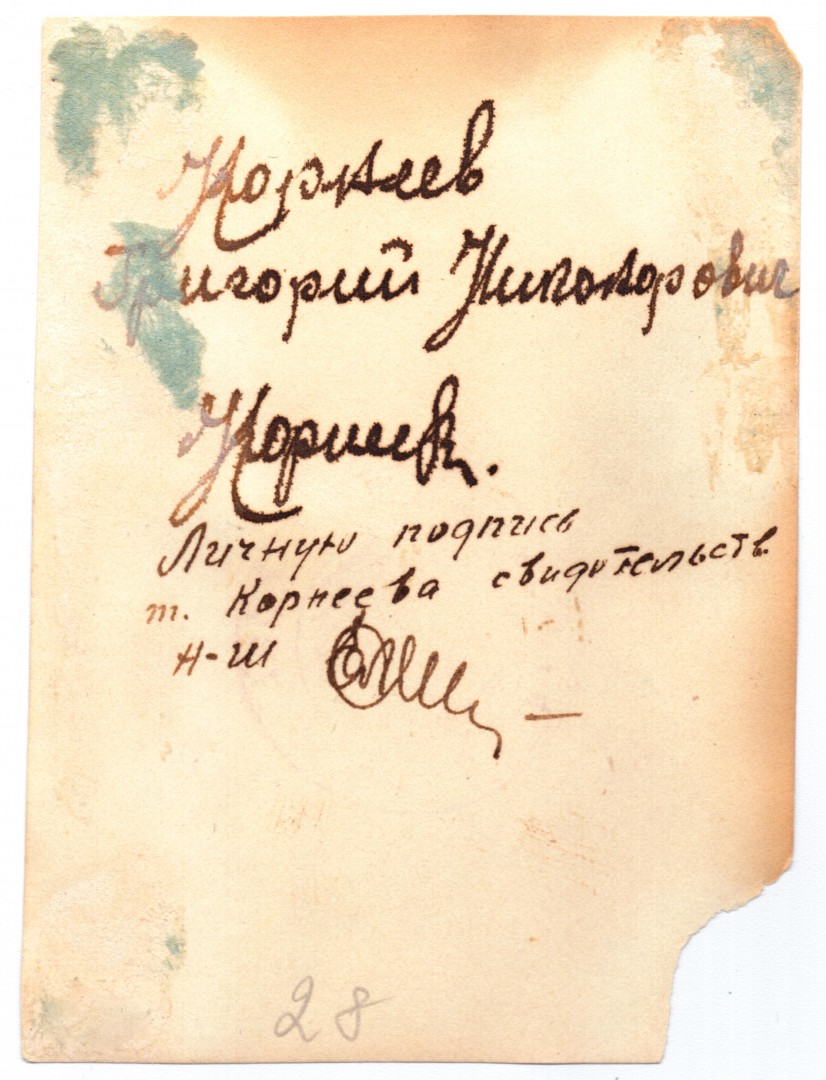 Корнеев
Григорий Никонорович
Корнеев.
Личную подпись
т. Корнеева свидетельств
н-ш
28